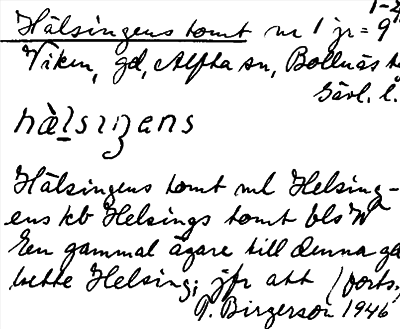 1-2
Hälsingens tomt nr 1 jr = 9
Viken, gd, Alfta sn, Bollnäs t
Gävl. l.
hà̱lsıŋens
Hälsingens tomt ml Helsing-
ens kb Helsings tomt bls
En gammal ägare till denna gd
hette Helsing; jfr att (forts.
P. Birgerson 1946